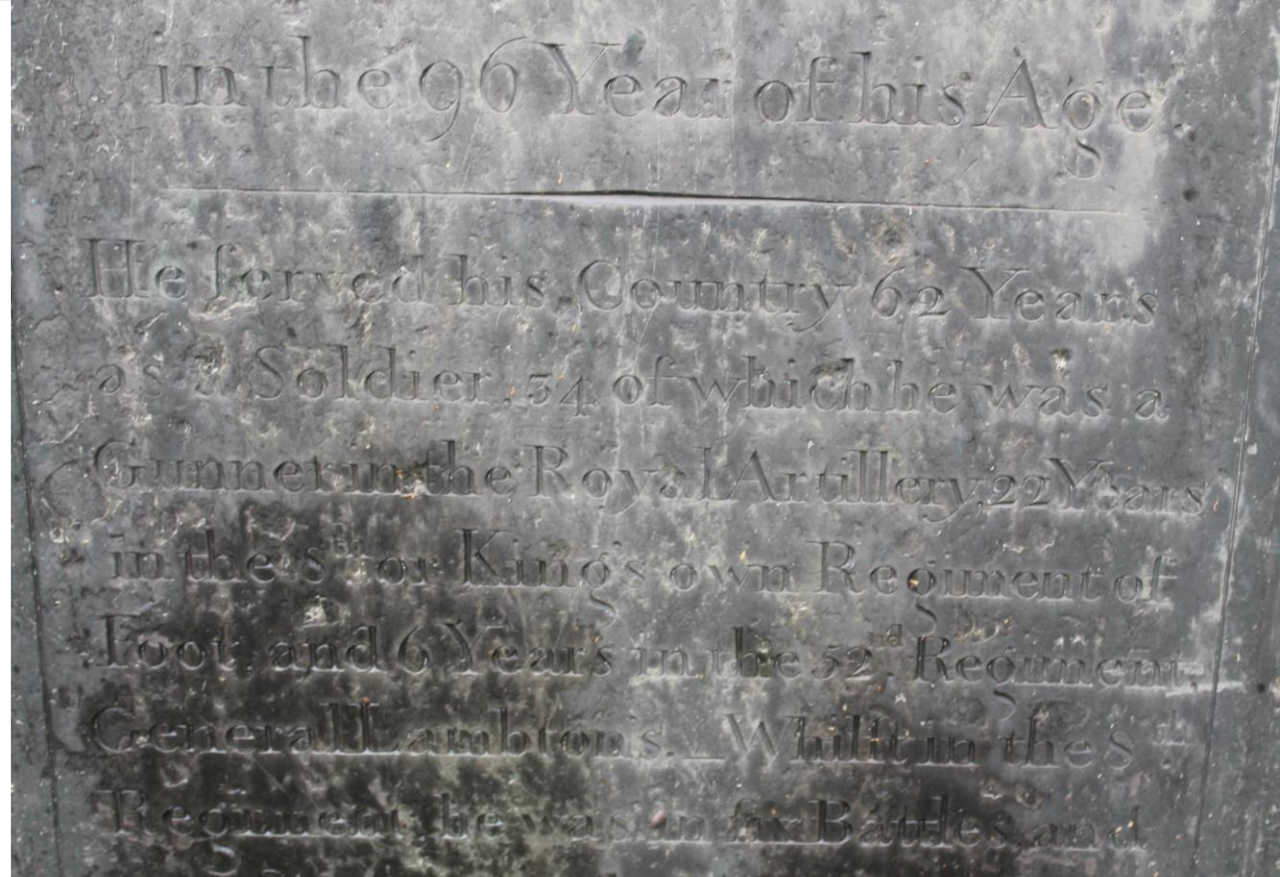 in the 96 Year of his Age
He ſerved his Country 62 Years
as a Soldier, 34 of which he was a
Gunner in the Royal Artillery, 22 Years
in the 8th or King's own Regiment of
Foot, and 6 Years in the 52d Regiment,
General Lambton's. Whilſt in the 8th
Regiment he was in ſix Battles and